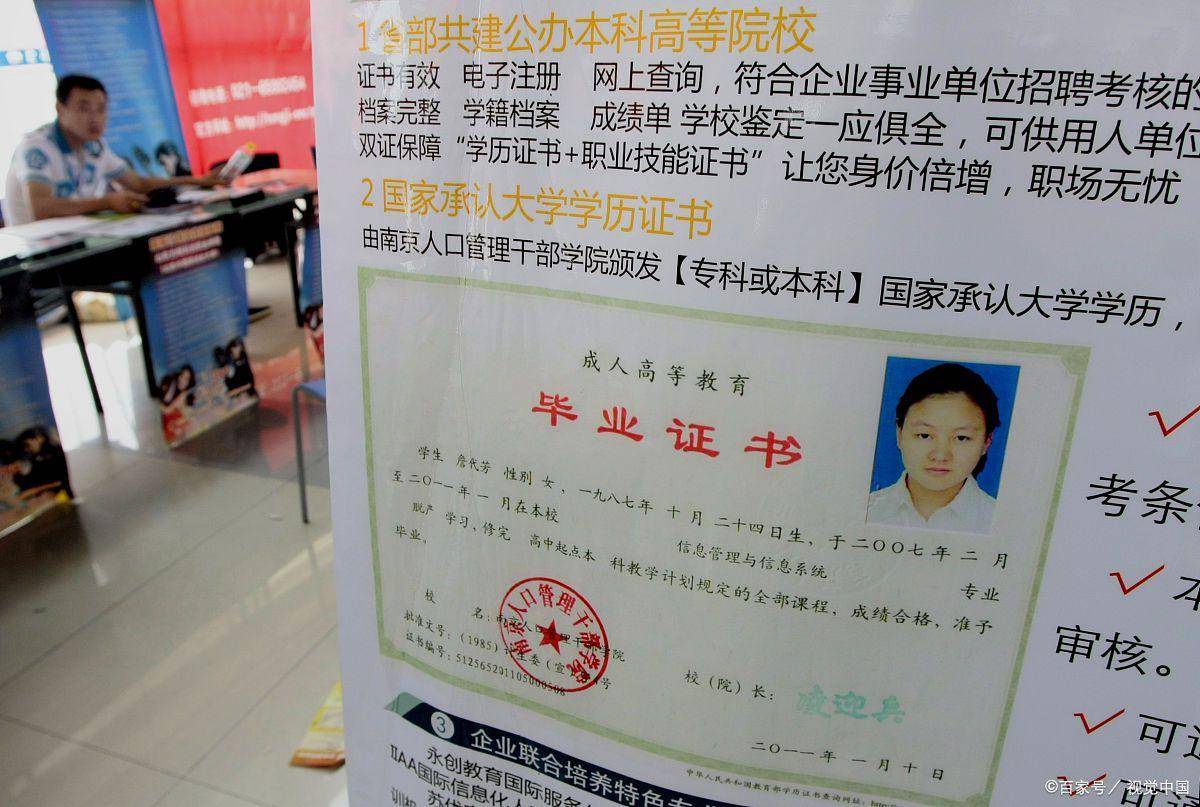 1省部共建公办本科高等院校
证书有效 电子注册 网上查询，符合企业事业单位招聘考核的
档案完整 学籍档案 成绩单 学校鉴定一应俱全，可供用人单位
双证保障“学历证书+职业技能证书”让您身价倍增，职场无忧
2 国家承认大学学历证书
由南京人口管理干部学院颁发【专科或本科】国家承认大学学历，
成人高等教育
毕业证书
学生 詹代芳 性别 女，一九八七年 十月 二十四日生，于二〇〇七年 二月
至二〇一一年 一 月在本校 信息管理与信息系统 专业
脱产 学习，修完 高中起点本 科教学计划规定的全部课程，成绩合格，准予
毕业。
校 名：南京人口管理干部学院
南京人口管理干部学院
批准文号：（1985）计生委（宣）
证书编号：512565201105000508
校（院）长： 凌迎兵
二〇一一年 一月十日
中华人民共和国教育部学历证书查询网址：http:
3 企业联合培养特色专
永创教育国际服务
IIAA国际信息化人
考条
审核。
可
©百家号／视觉中国